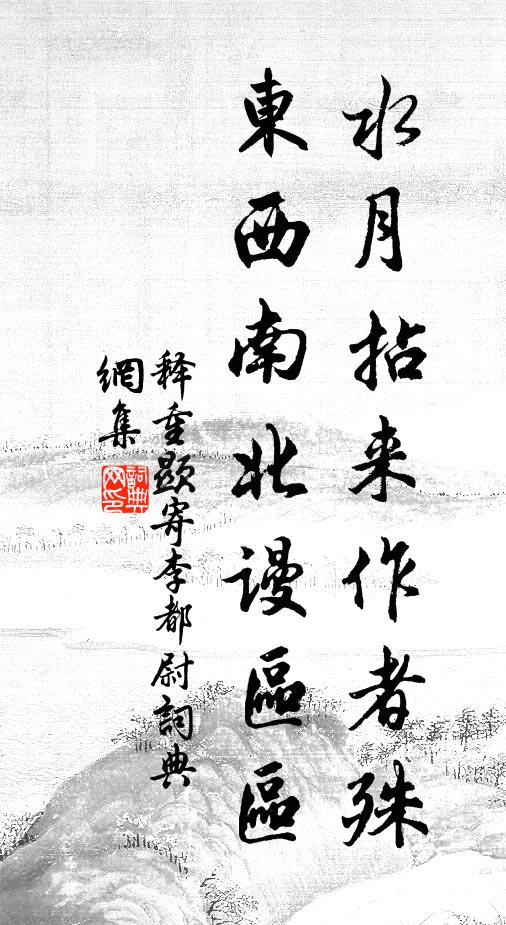 水月拈来作者殊
東西南北謾區區
释重顯寄李都尉詞典
網集
詞典網印